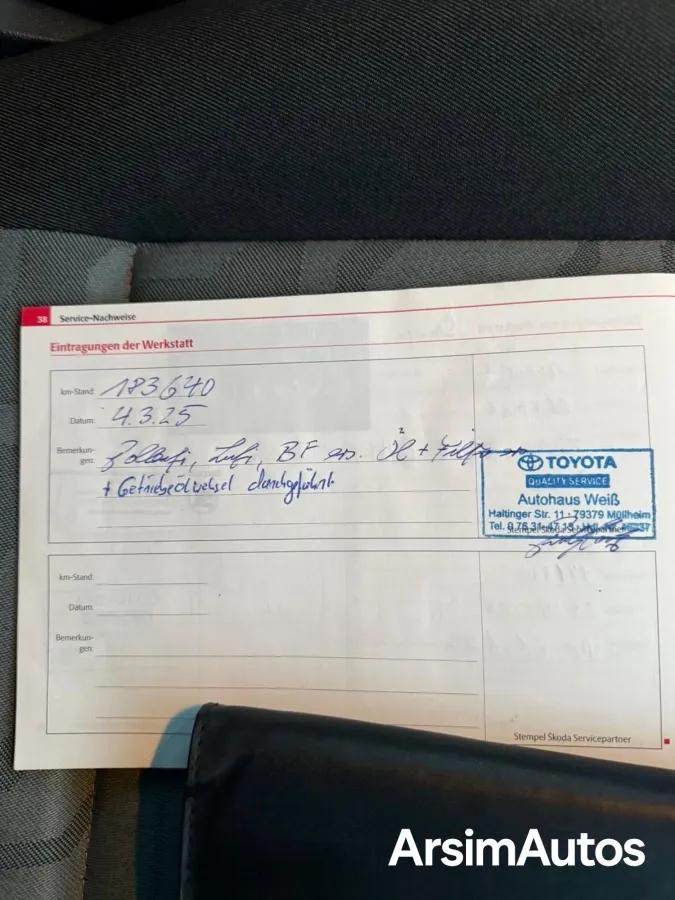 38 Service-Nachweise
Eintragungen der Werkstatt
km-Stand: 183640
Datum: 4.3.25
Bemerkun-
gen: Pollenfi, Lufi, BF ern. Öl + Filter ern
+ Getriebeölwechsel durchgeführt.
TOYOTA
QUALITY SERVICE
Autohaus Weiß
Haltinger Str. 11 · 79379 Müllheim
Tel. 0 76 31
Stempel Škoda Servicepartner
km-Stand:
Datum:
Bemerkun-
gen:
Stempel Škoda Servicepartner
ArsimAutos